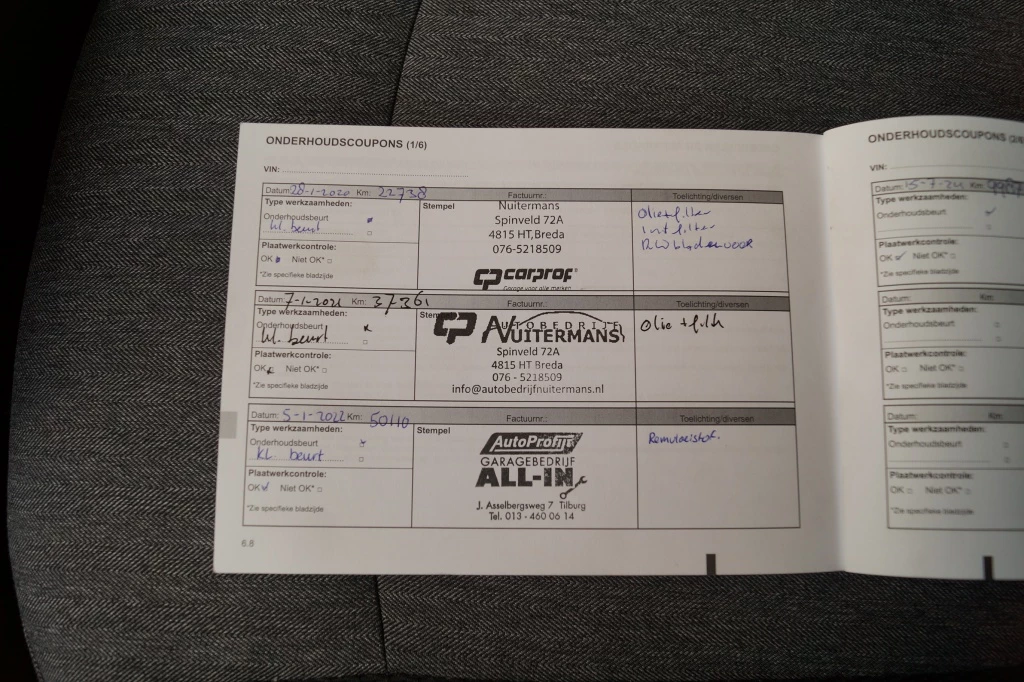 ONDERHOUDSCOUPONS (1/6)
VIN:
Datum: 28-1-2020 Km: 22738 Factuurnr.: Toelichting/diversen
Type werkzaamheden:
Onderhoudsbeurt
kl. beurt
Plaatwerkcontrole:
OK Niet OK*
*Zie specifieke bladzijde
Stempel
Nuitermans
Spinveld 72A
4815 HT, Breda
076-5218509
CP carprof
Garage voor alle merken
Olie+filter
Int filter
Datum: 7-1-2021 Km: 37361 Factuurnr.: Toelichting/diversen
Type werkzaamheden:
Onderhoudsbeurt
kl. beurt
Plaatwerkcontrole:
OK Niet OK*
*Zie specifieke bladzijde
CP AUTOBEDRIJF
NUITERMANS
Spinveld 72A
4815 HT Breda
076 - 5218509
info@autobedrijfnuitermans.nl
Olie +
Datum: 5-1-2022 Km: 50110 Factuurnr.: Toelichting/diversen
Type werkzaamheden:
Onderhoudsbeurt
kl. beurt
Plaatwerkcontrole:
OK Niet OK*
*Zie specifieke bladzijde
Stempel
AutoProfijt
GARAGEBEDRIJF
ALL-IN
J. Asselbergsweg 7 Tilburg
Tel. 013 - 460 06 14
Remvloeistof.
6.8
ONDERHOUDSCOUPONS (2/6
VIN:
Datum: 15-7-24 Km:
Type werkzaamheden:
Onderhoudsbeurt
Plaatwerkcontrole:
OK Niet OK*
*Zie specifieke bladzijde
Datum: Km:
Type werkzaamheden:
Onderhoudsbeurt
Plaatwerkcontrole:
OK Niet OK*
*Zie specifieke bladzijde
Datum: Km:
Type werkzaamheden:
Onderhoudsbeurt
Plaatwerkcontrole:
OK Niet OK*
*Zie specifieke bladzijde